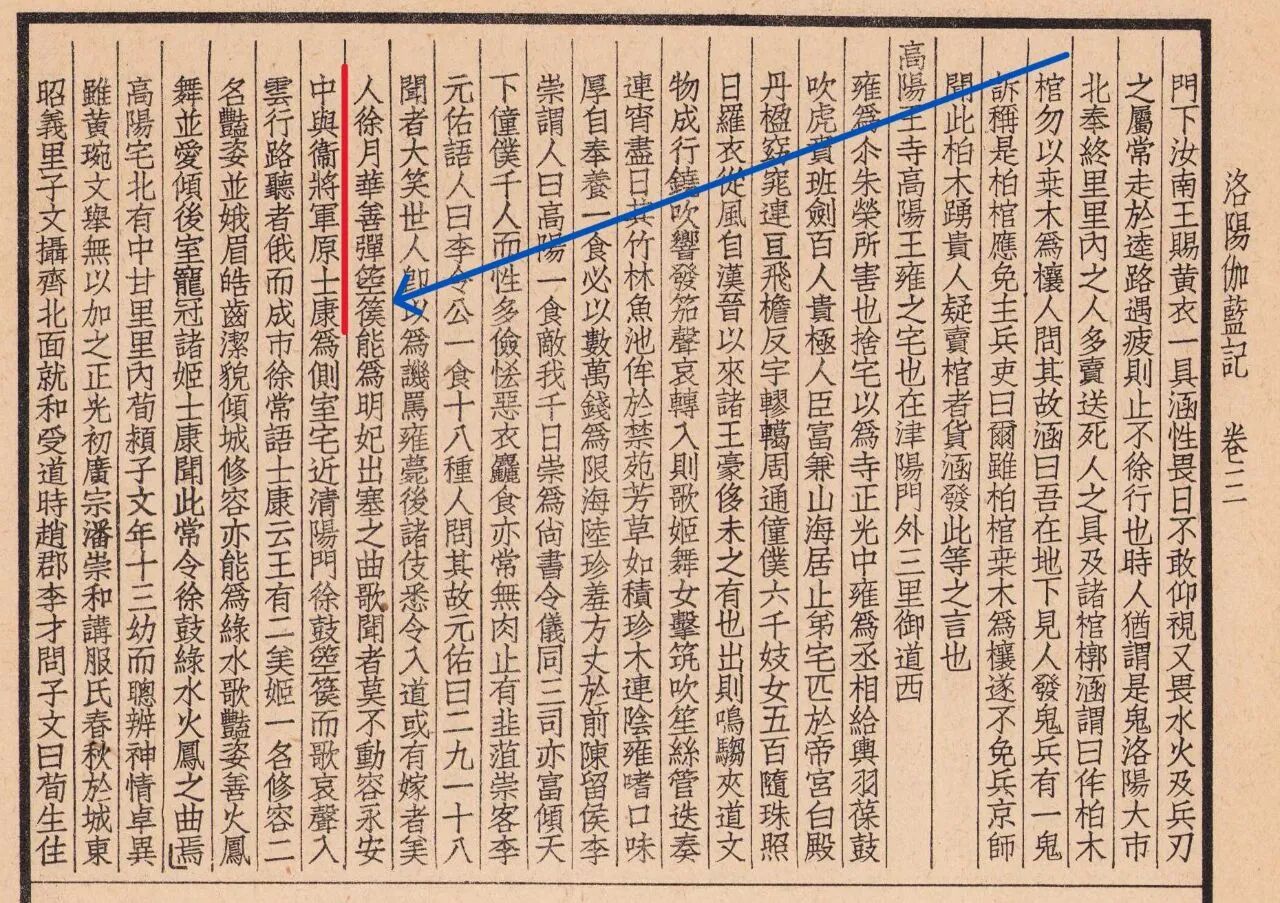 洛陽伽藍記 卷三
門下汝南王賜黃衣一具涵性畏日不敢仰視又畏水火及兵刃
之屬常走於逵路遇疲則止不徐行也時人猶謂是鬼洛陽大市
北奉終里里內之人多賣送死人之具及諸棺槨涵謂曰作柏木
棺勿以桒木爲欀人問其故涵曰吾在地下見人發鬼兵有一鬼
訴稱是柏棺應免主兵吏曰爾雖柏棺桒木爲欀遂不免兵京師
聞此柏木踴貴人疑賣棺者貨涵發此等之言也
高陽王寺高陽王雍之宅也在津陽門外三里御道西
雍爲尒朱榮所害也捨宅以爲寺正光中雍爲丞相給輿羽葆鼓
吹虎賁班劍百人貴極人臣富兼山海居止第宅匹於帝宮白殿
丹楹窈窕連亘飛檐反宇轇轕周通僮僕六千妓女五百隨珠照
日羅衣從風自漢晉以來諸王豪侈未之有也出則鳴騶夾道文
物成行鐃吹響發笳聲哀轉入則歌姬舞女擊筑吹笙絲管迭奏
連宵盡日其竹林魚池侔於禁苑芳草如積珍木連陰雍嗜口味
厚自奉養一食必以數萬錢爲限海陸珍羞方丈於前陳留侯李
崇謂人曰高陽一食敵我千日崇爲尙書令儀同三司亦富傾天
下僮僕千人而性多儉恡惡衣麤食亦常無肉止有韭菹崇客李
元佑語人曰李令公一食十八種人問其故元佑曰二九一十八
聞者大笑世人卽以爲譏罵雍薨後諸伎悉令入道或有嫁者美
人徐月華善彈箜篌能爲明妃出塞之曲歌聞者莫不動容永安
中與衞將軍原士康爲側室宅近清陽門徐鼓箜篌而歌哀聲入
雲行路聽者俄而成市徐常語士康云王有二美姬一名修容二
名豔姿並娥眉皓齒潔貌傾城修容亦能爲綠水歌豔姿善火鳳
舞並愛傾後室寵冠諸姬士康聞此常令徐鼓綠水火鳳之曲焉
高陽宅北有中甘里里內荀潁子文年十三幼而聰辨神情卓異
雖黃琬文舉無以加之正光初廣宗潘崇和講服氏春秋於城東
昭義里子文攝齊北面就和受道時趙郡李才問子文曰荀生住